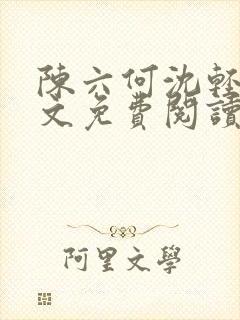 陳六何沈輕
文免費閱讀
阿里文學